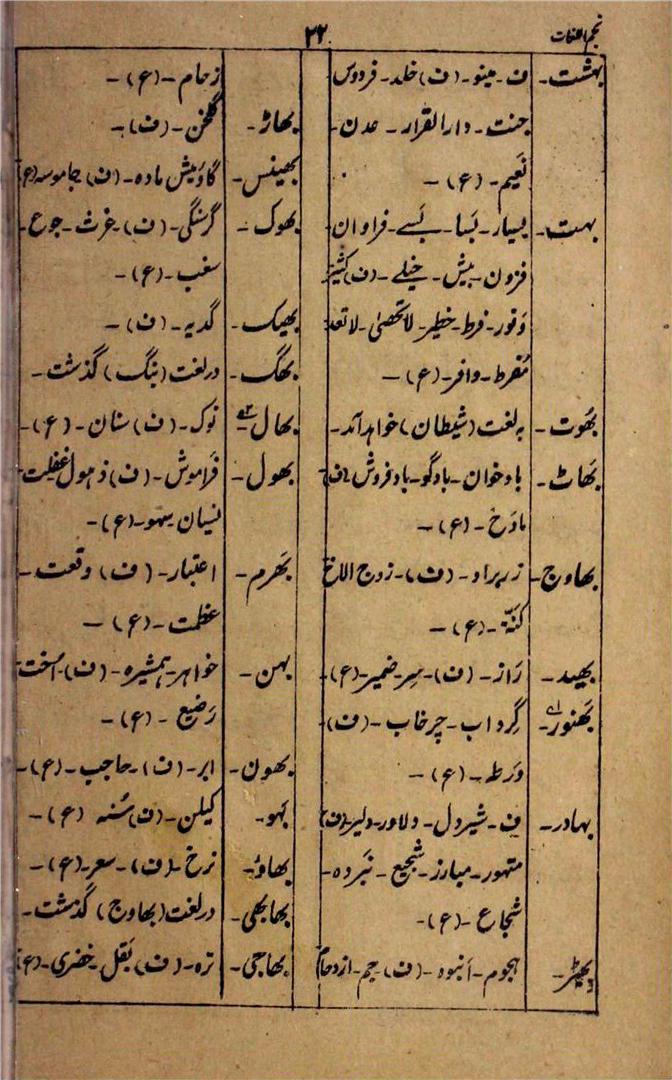 نجم اللغات
۲۲
بہشت - ف - مینو - (ف) خلد - فردوس
جنت - دار القرار - عدن -
نعیم - (ع) -
بہت - بسیار - بَسا - بَسے - فراوان -
فزون - بیش - خیلے - (ف) کثیر
وفور - فرط - خطیر - لاتحصیٰ - لاتعد
مُفرط - وافر - (ع) -
بھُوت - بہ لغت (شیطان) خواہد آمد -
بھَاٹ - بادخوان - بادگو - بادفروش (ف)
مادح - (ع) -
بھاوج - زن برادر - (ف) - زوج الاخ
کنّہ - (ع) -
بھید - رَاز - (ف) - سِر - ضمیر - (ع) -
بھَنور - گرداب - چرخاب - (ف) -
ورطہ - (ع) -
بہادر - ف - شیردل - دلاور - دلیر - (ف)
متہور - مبارز - شجیع - نَبردہ -
شجاع - (ع) -
بھیڑ - ہجوم - اَنبوہ - (ف) جم - ازدحام
زحام - (ع) -
بھاڑ - گلخن - (ف) -
بھینس - گاؤمیش مادہ - (ف) جاموسہ (ع)
بھوک - گرسنگی - (ف) - غرث - جوع -
سغب - (ع) -
بھیک - گدیہ - (ف) -
بھنگ - درلغت (بنگ) گذشت -
بھال - نوک - (ف) سنان - (ع) -
بھول - فراموش - (ف) ذہول غفلت
نسیان سہو - (ع) -
بھَرم - اعتبار - (ف) وقعت -
عظمت - (ع) -
بہن - خواہر - ہمشیرہ - (ف) - اُخت
رَضیع - (ع) -
بھون - ابر - (ف) - حاجب - (ع) -
بَہو - کیلن - (ف) سُنہ (ع) -
بھاؤ - نرخ - (ف) - سعر - (ع) -
بھابھی - درلغت (بھاوج) گذشت -
بھاجی - ترہ - (ف) بَقل - خضری - (ع)